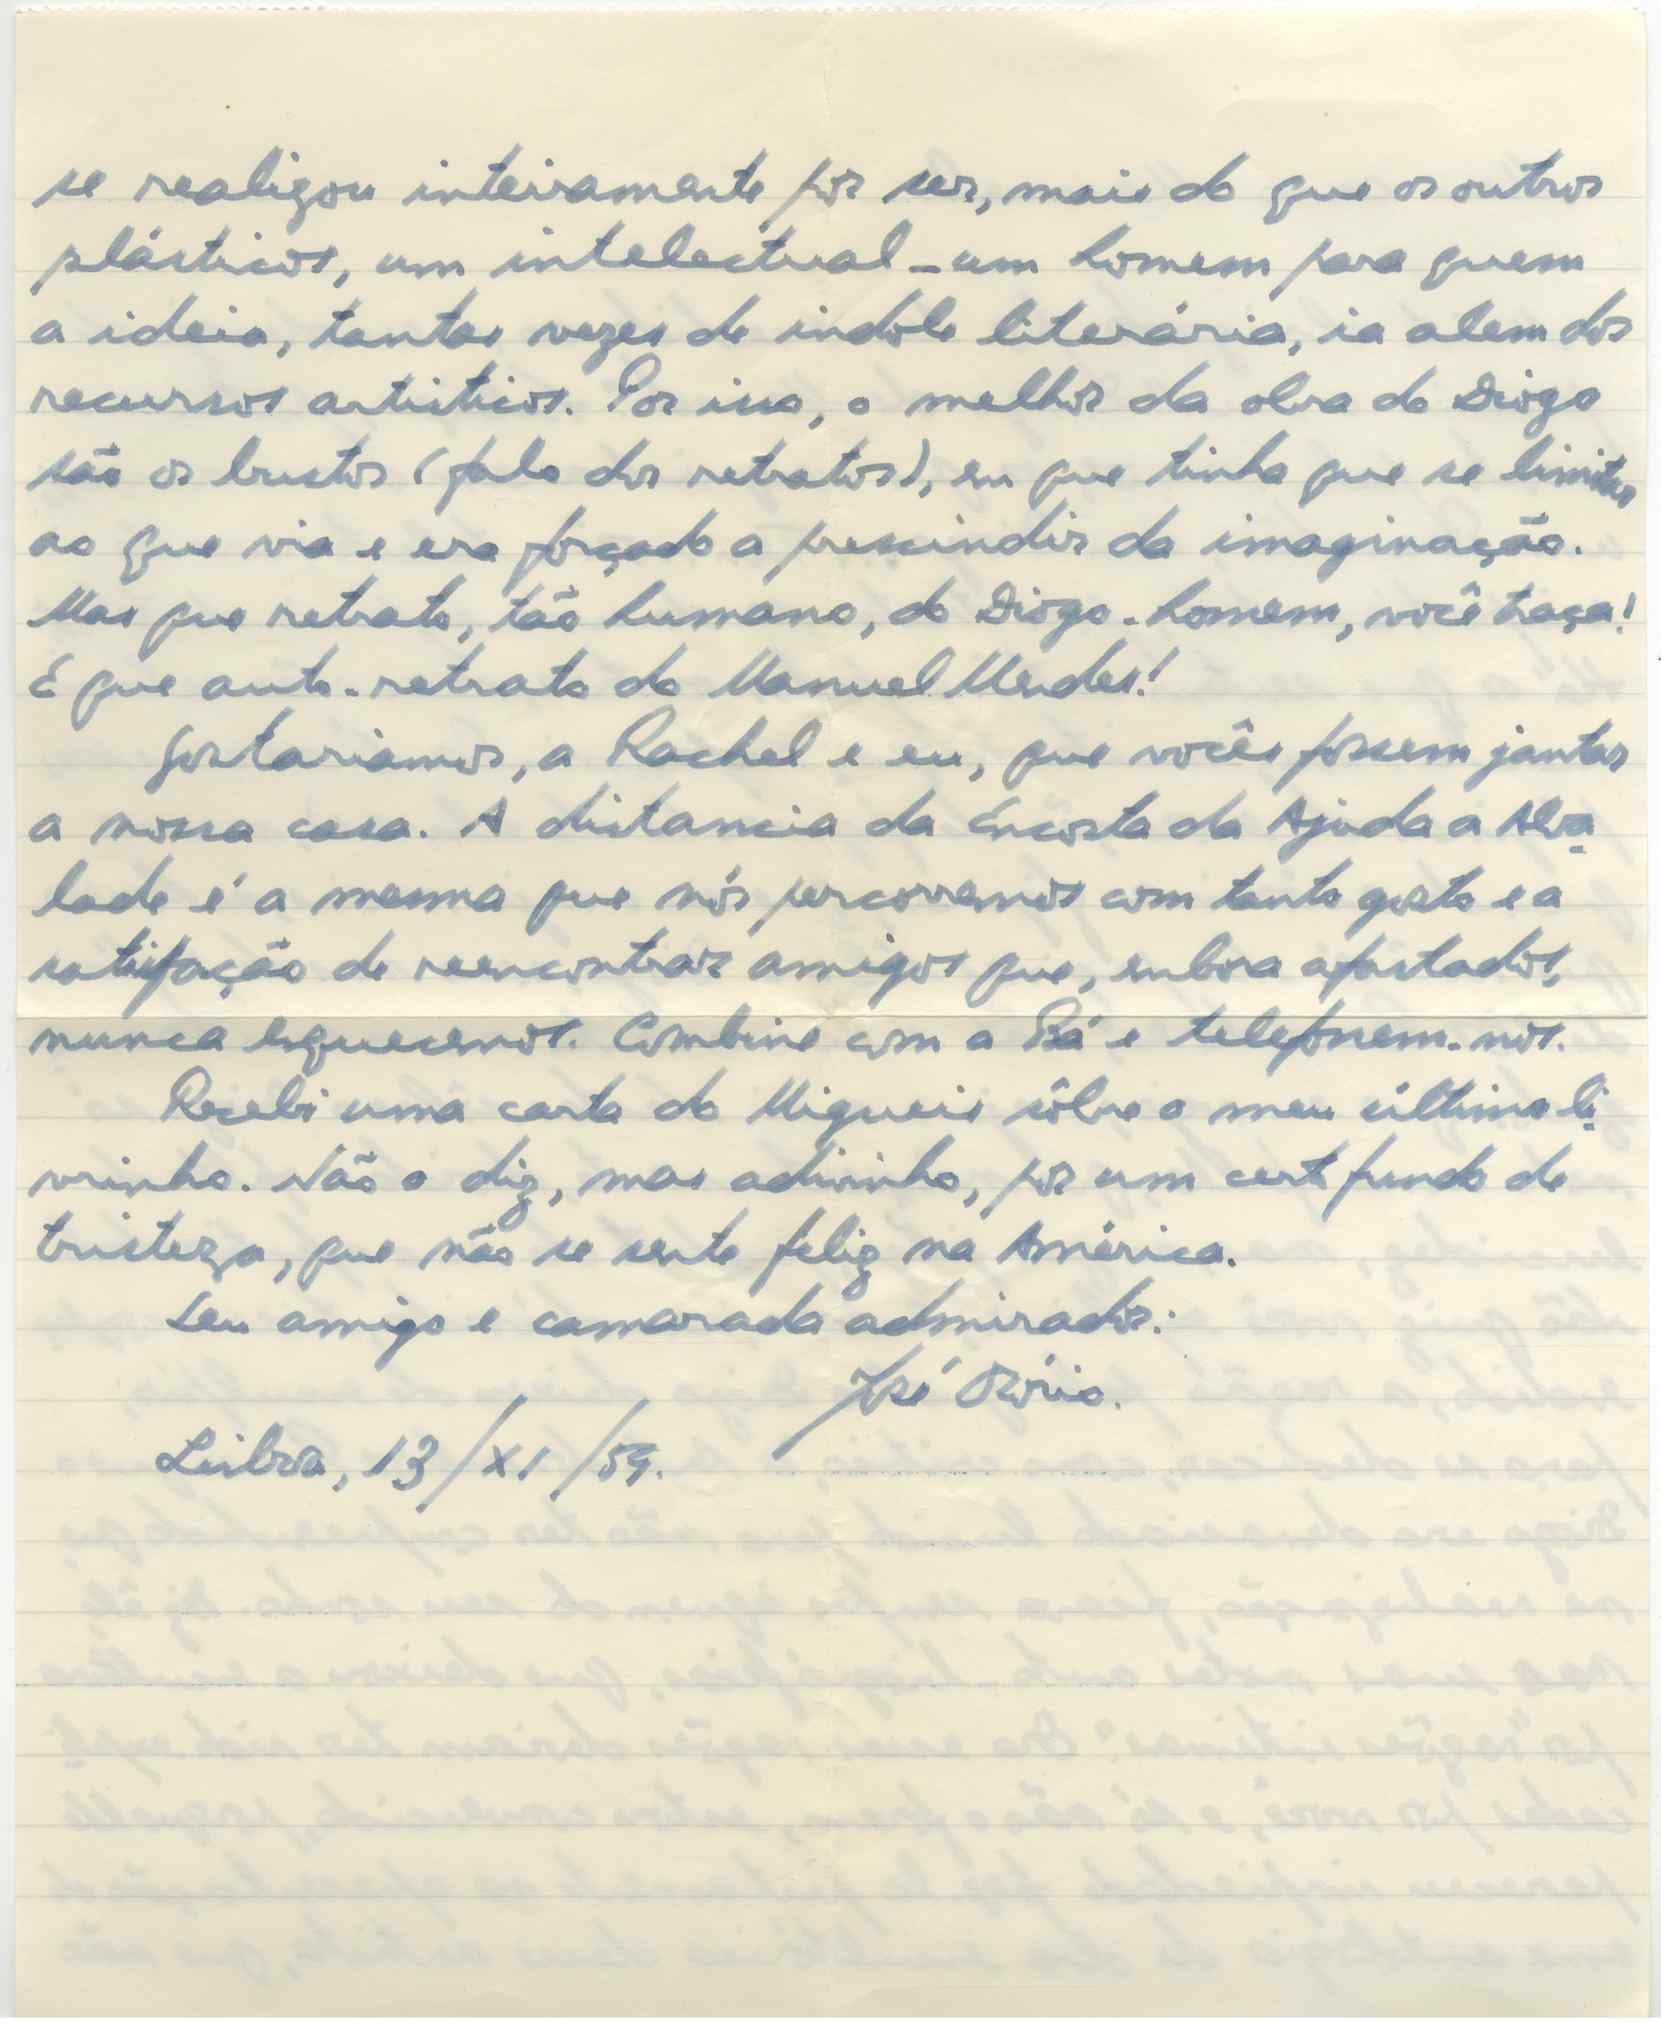 se realizou inteiramente por ser, mais do que os outros
plásticos, um intelectual - um homem para quem
a ideia, tantas vezes de indole literária, ia alem dos
recursos artisticos. Por isso, o melhor da obra do Diogo
são os bustos (falo dos retratos), em que tinha que se limitar
ao que via e era forçado a prescindir da imaginação.
Mas que retrato, tão humano, do Diogo-homem, você traça!
E que auto-retrato do Manuel Mendes!
Gostariamos, a Rachel e eu, que vocês fossem jantar
a nossa casa. A distancia da Encosta da Ajuda a Alva
lade é a mesma que nós percorremos com tanto gosto e a
satisfação de reencontrar amigos que, embora afastados,
nunca esquecemos. Combine com a Bá e telefonem-nos.
Recebi uma carta do Migueis sôbre o meu último li
vrinho. Não o diz, mas adivinho, por um certo fundo de
tristeza, que não se sente feliz na América.
Seu amigo e camarada admirador:
José Osório.
Lisboa, 13/XI/59.